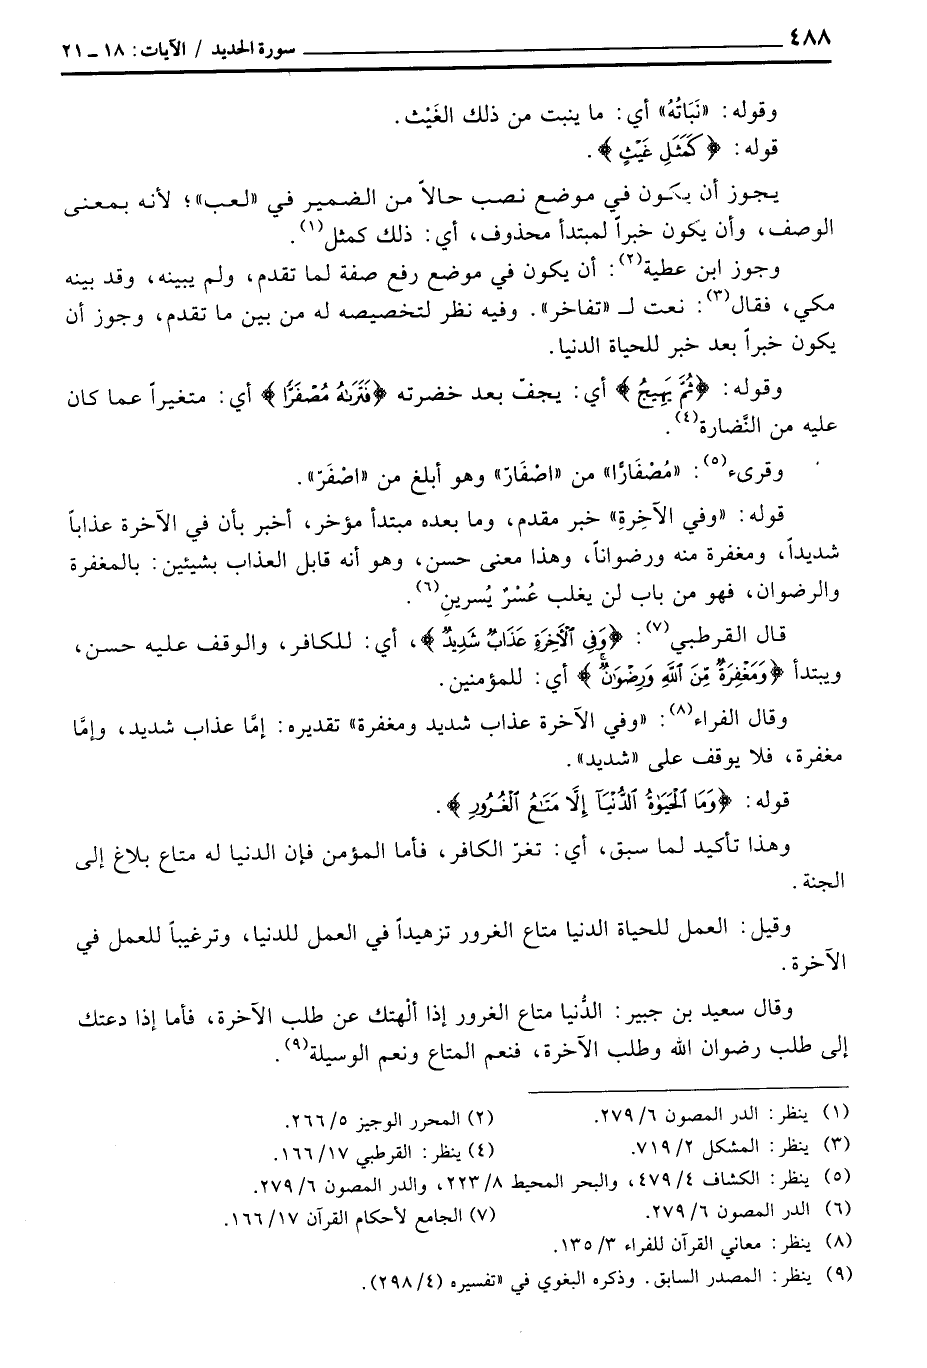 ٤٨٨ سورة الحديد / الآيات: ١٨ ـ ٢١
وقوله: «نَبَاتُهُ» أي: ما ينبت من ذلك الغَيْث.
قوله: ﴿كَمَثَلِ غَيْثٍ﴾.
يجوز أن يكون في موضع نصب حالاً من الضمير في «لعب»؛ لأنه بمعنى
الوصف، وأن يكون خبراً لمبتدأ محذوف، أي: ذلك كمثل(١).
وجوز ابن عطية(٢): أن يكون في موضع رفع صفة لما تقدم، ولم يبينه، وقد بينه
مكي، فقال(٣): نعت لـ «تفاخر». وفيه نظر لتخصيصه له من بين ما تقدم، وجوز أن
يكون خبراً بعد خبر للحياة الدنيا.
وقوله: ﴿ثُمَّ يَهِيجُ﴾ أي: يجفّ بعد خضرته ﴿فَتَرَىٰهُ مُصْفَرًّا﴾ أي: متغيراً عما كان
عليه من النَّضارة(٤).
وقرىء(٥): «مُصْفَارًّا» من «اصْفَارّ» وهو أبلغ من «اصْفَرّ».
قوله: «وفي الآخِرةِ» خبر مقدم، وما بعده مبتدأ مؤخر، أخبر بأن في الآخرة عذاباً
شديداً، ومغفرة منه ورضواناً، وهذا معنى حسن، وهو أنه قابل العذاب بشيئين: بالمغفرة
والرضوان، فهو من باب لن يغلب عُسْرٌ يُسرينِ(٦).
قال القرطبي(٧): ﴿وَفِي ٱلْأٓخِرَةِ عَذَابٌ شَدِيدٌ﴾، أي: للكافر، والوقف عليه حسن،
ويبتدأ ﴿وَمَغْفِرَةٌ مِّنَ ٱللَّهِ وَرِضْوَٰنٌۚ﴾ أي: للمؤمنين.
وقال الفراء(٨): «وفي الآخرة عذاب شديد ومغفرة» تقديره: إمَّا عذاب شديد، وإمَّا
مغفرة، فلا يوقف على «شديد».
قوله: ﴿وَمَا ٱلْحَيَوٰةُ ٱلدُّنْيَآ إِلَّا مَتَٰعُ ٱلْغُرُورِ﴾.
وهذا تأكيد لما سبق، أي: تغرّ الكافر، فأما المؤمن فإن الدنيا له متاع بلاغ إلى
الجنة.
وقيل: العمل للحياة الدنيا متاع الغرور تزهيداً في العمل للدنيا، وترغيباً للعمل في
الآخرة.
وقال سعيد بن جبير: الدُّنيا متاع الغرور إذا ألْهتك عن طلب الآخرة، فأما إذا دعتك
إلى طلب رضوان الله وطلب الآخرة، فنعم المتاع ونعم الوسيلة(٩).
(١) ينظر: الدر المصون ٦/ ٢٧٩. (٢) المحرر الوجيز ٥/ ٢٦٦.
(٣) ينظر: المشكل ٢/ ٧١٩. (٤) ينظر: القرطبي ١٧/ ١٦٦.
(٥) ينظر: الكشاف ٤/ ٤٧٩، والبحر المحيط ٨/ ٢٢٣، والدر المصون ٦/ ٢٧٩.
(٦) الدر المصون ٦/ ٢٧٩. (٧) الجامع لأحكام القرآن ١٧/ ١٦٦.
(٨) ينظر: معاني القرآن للفراء ٣/ ١٣٥.
(٩) ينظر: المصدر السابق. وذكره البغوي في «تفسيره (٤/ ٢٩٨).